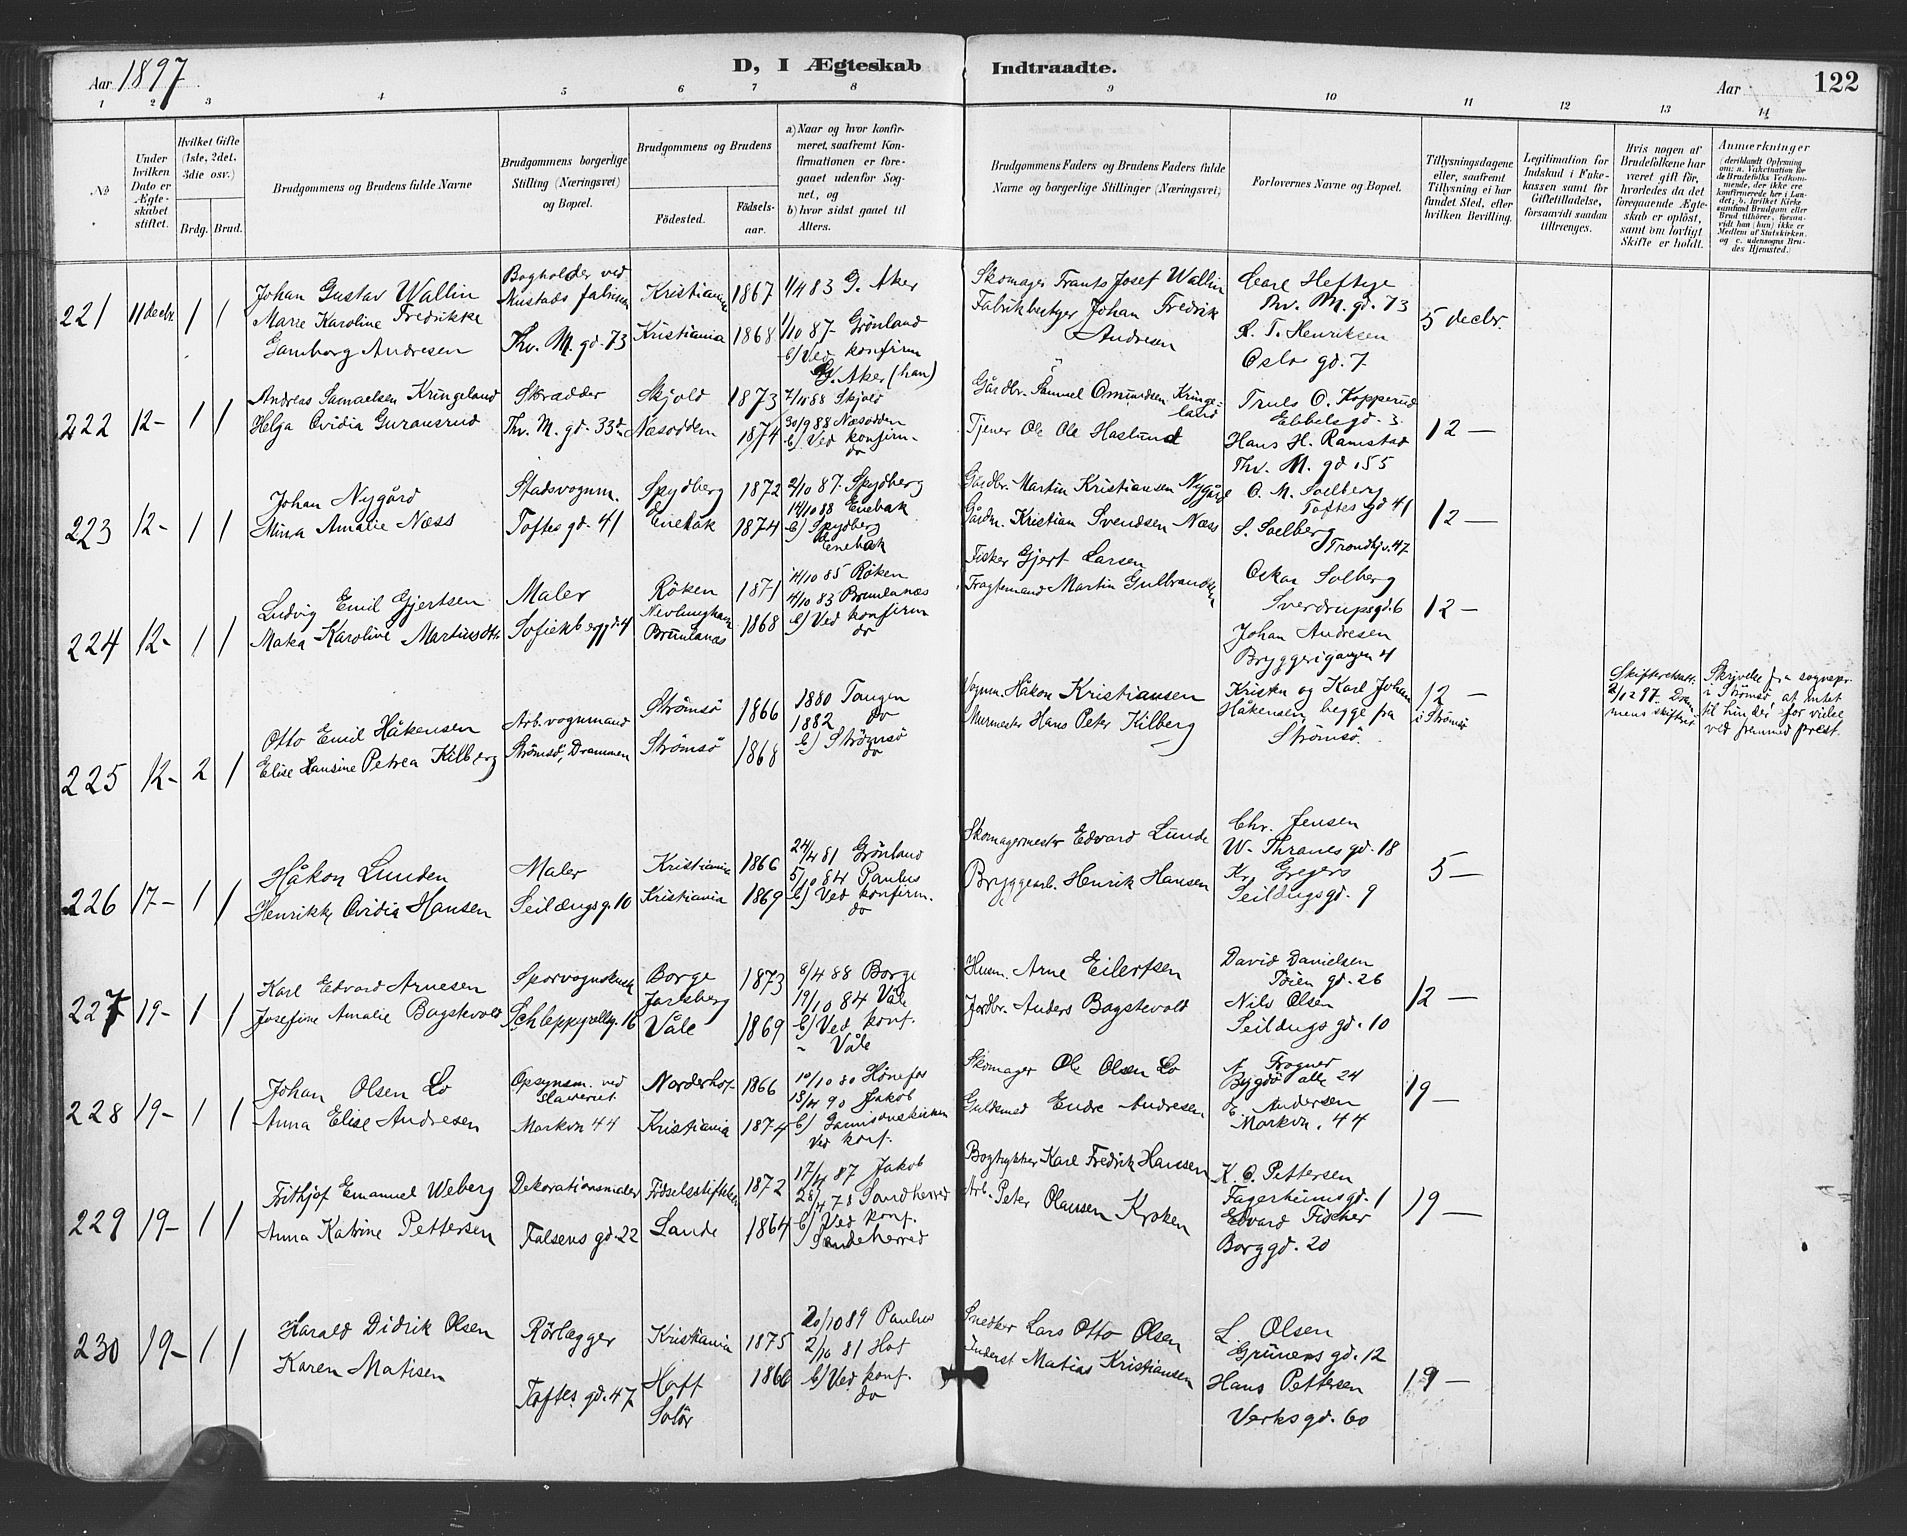 Aar 1897
D, I Ægteskab Indtraadte.
Aar 122
1 2 3 4 5 6 7 8 9 10 11 12 13 14
No
Under hvilken Dato er Ægteskabet stiftet.
Hvilket Gifte (1ste, 2det, 3die osv.)
Brdg. Brud.
Brudgommens og Brudens fulde Navne
Brudgommens borgerlige Stilling (Næringsvei) og Bopæl.
Brudgommens og Brudens
Fødested.
Fødselsaar.
a) Naar og hvor konfirmeret, saafremt Konfirmationen er foregaaet udenfor Sognet, og
b) hvor sidst gaaet til Alters.
Brudgommens Faders og Brudens Faders fulde Navne og borgerlige Stillinger (Næringsvei)
Forlovernes Navne og Bopæl.
Tillysningsdagene eller, saafremt Tillysning ei har fundet Sted, efter hvilken Bevilling.
Legitimation for Indskud i Fakekassen samt for Giftetilladelse, forsaavidt saadan tiltrænges.
Hvis nogen af Brudefolkene har været gift før, hvorledes da det foregaaende Ægteskab er opløst, samt om lovligt Skifte er holdt.
Anmærkninger
(deriblandt Oplysning om: a. Vakcination for de Brudefolks Vedkommende, der ikke ere konfirmerede her i Landet; b. hvilket Kirkesamfund Brudgom eller Brud tilhører, forsaavidt han (hun) ikke er Medlem af Statskirken, og c. udensogns Brudes Hjemsted.
221 11 decbr 1 1
Johan Gustav Wallin
Marie Karoline Fredrikke
Gamborg Andresen
Bogholder ved
Mustads fabriker
Thv. M. gd. 73
Kristiania 1867
Kristiania 1868
1/4 83 G. Aker
1/10 87 Grönland
b) Ved konfirm
G. Aker (han)
Skomager Frants Josef Wallin
Fabrikbestyer Johan Fredrik
Andresen
Carl Heftye
Thv. M. gd. 73
A. T. Henriksen
Oslo gd. 7
5 decbr.
222 12- 1 1
Andreas Samuelsen Kringeland
Helga Ovidia Guransrud
Skrædder
Thv. M. gd. 33d
Skjold 1873
Næsodden 1874
2/10 88 Skjold
30/9 88 Næsodden
b) Ved konfirm-
do
Gårdbr. Samuel Omundsen Kringeland
Tjener Ole Ole Haslund
Truls O. Kopperud
Ebbelsgd. 3
Hans H. Ramstad
Thv. M. gd 155
12 —
223 12- 1 1
Johan Nygård
Mina Amalie Næss
Stadsvognm.
Toftes gd. 41
Spydberg 1872
Enebak 1874
2/10 87 Spydberg
14/10 88 Enebak
b) Spydberg
Enebak
Gårdbr. Martin Kristiansen Nygård
Gårdm. Kristian Svendsen Næss
O. M. Solberg
Toftes gd 41
S. Solberg
Trondhj.v. 47
12 —
224 12- 1 1
Ludvig Emil Gjertsen
Maka Karoline Martinsdtr.
Maler
Sofiekbergd. 4
Röken 1871
Nevlunghavn
Brunlanæs 1868
14/10 85 Röken
4/10 83 Brunlanæs
b) Ved konfirm
do
Fisker Gjert Larsen
Fragtemand Martin Gulbrandsen
Oskar Solberg
Sverdrupsgd. 6
Johan Andresen
Bryggerigangen 4
12 —
225 12- 2 1
Otto Emil Håkensen
Elise Hansine Petrea Kilberg
Arb. vognmand
Strömsö, Drammen
Strömsö 1866
Strömsö 1868
1880 Tangen
1882 do
b) Strömsö
do
Vognm. Håkon Kristiansen
Murmester Hans Peter Kilberg
Kristen og Karl Johan
Håkensen, begge fra
Strömsö.
12 —
i Strömsö
Skifteretsatt.
2/12 97. Drammens skifteret
Skrivelse fra sognepr.
i Strømsø at intet
til hinder for vielse
ved fremmed prest.
226 17- 1 1
Håkon Lunden
Henrikke Ovidia Hansen
Maler
Seildugsg. 10
Kristiania 1866
Kristiania 1869
24/4 81 Grönland
5/10 84 Paulus
b) Ved konfirm.
do
Skomagermester Edvard Lunde
Bryggearb. Henrik Hansen
Chr. Jensen
W. Thranes gd. 18
Kr. Gregers
Seildugsgd. 9
5 —
227 19- 1 1
Karl Edvard Arnesen
Josefine Amalie Bogstevold
Sporvognskusk
Schleppegrellsg. 16
Borge 1873
Jarlsberg
Våle 1869
8/4 88 Borge
19/10 84 Våle
b) Ved konf.
- Våle
Husm. Arne Eilertsen
Jordbr. Anders Bogstevold
David Danielsen
Töien gd. 26
Nils Olsen
Seildugs gd. 10
12 —
228 19- 1 1
Johan Olsen Lo
Anna Elise Andresen
Opsynsm. ved
Markvn 44
Norderhof 1866
Kristiania 1874
10/10 80 Hönefos
13/4 90 Jakob
b) Garnisonskirken
Ved konf.
Skomager Ole Olsen Lo
Guldsmed Endre Andresen
A. Frogner
Bygdö alle 24
E. Andersen
Markvn. 44
19 —
229 19- 1 1
Frithjof Emanuel Weberg
Anna Katrine Pettersen
Dekorationsmaler
Falsens gd. 22
Födselsstiftelsen 1872
Sande 1864
17/4 87 Jakob
28/4 78 Sandherred
b) Ved konf.
Sandeherred
Bogtrykker Karl Fredrik Hansen
Arb. Peter Olausen Kroken
K. O. Pettersen
Fagerheimsgd. 1
Edvard Fischer
Borggd. 20
19 —
230 19- 1 1
Harald Didrik Olsen
Karen Matisen
Rörlægger
Toftes gd. 47
Kristiania 1875
Hoff 1866
Solör
20/10 89 Paulus
2/10 81 Hof
b) Ved konf.
do
Snedker Lars Otto Olsen
Inderst Matias Kristiansen
L. Olsen
Grüners gd. 12
Hans Pettersen
Verksgd. 60
19 —